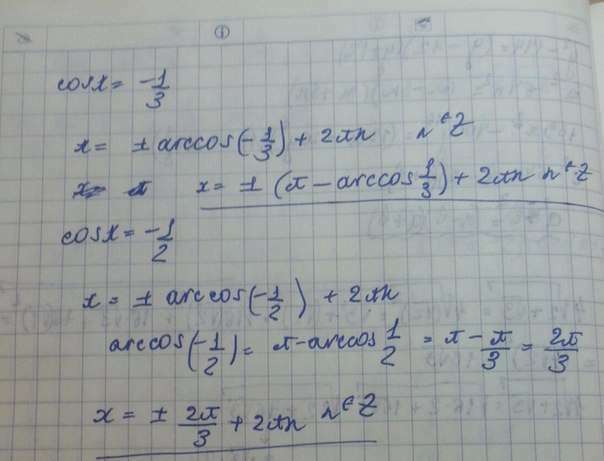 ①
cosx = -1/3
x = ± arccos(-1/3) + 2πn n∈Z
x = ± (π - arccos 1/3) + 2πn n∈Z
cosx = -1/2
x = ± arccos(-1/2) + 2πn
arccos(-1/2) = π - arccos 1/2 = π - π/3 = 2π/3
x = ± 2π/3 + 2πn n∈Z